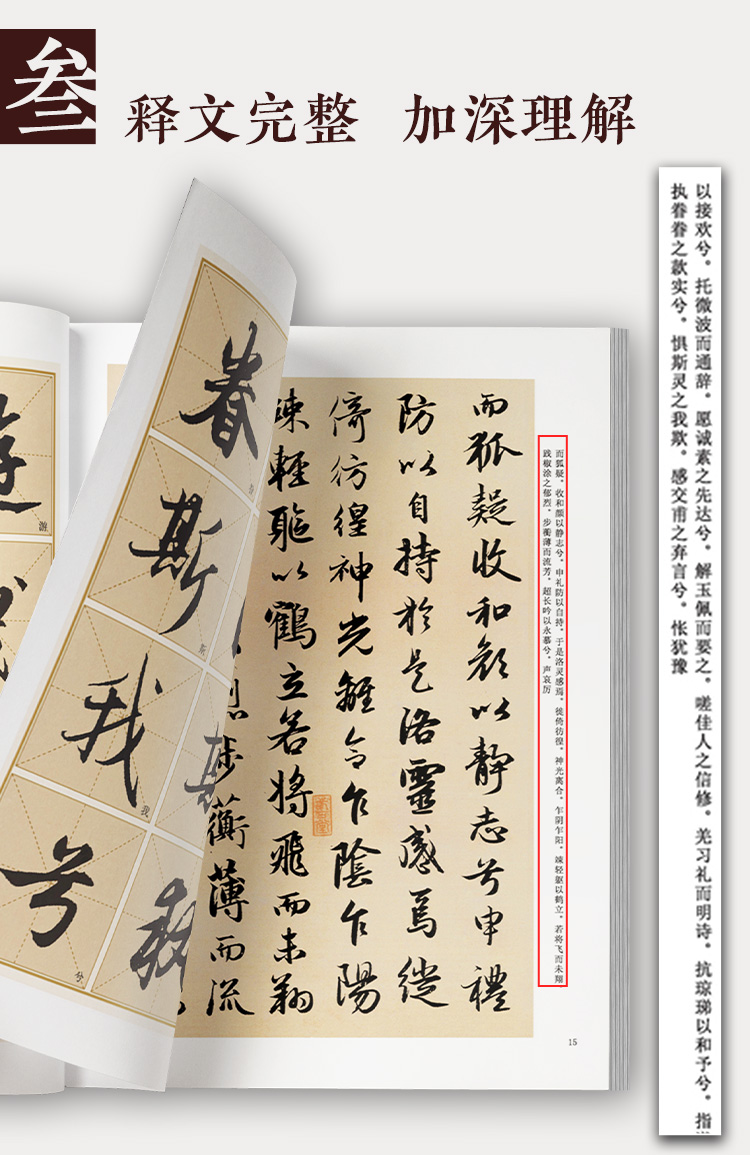 叁
释文完整 加深理解
以接欢兮。托微波而通辞。愿诚素之先达兮，解玉佩而要之。嗟佳人之信修，羌习礼而明诗。抗琼珶以和予兮，指
执眷眷之款实兮，惧斯灵之我欺。感交甫之弃言兮，怅犹豫
而狐疑。收和颜以静志兮，申礼防以自持。于是洛灵感焉，徙倚彷徨。神光离合，乍阴乍阳。竦轻躯以鹤立，若将飞而未翔
践椒涂之郁烈，步蘅薄而流芳。超长吟以永慕兮，声哀厉
而狐疑收和顏以靜志兮申禮
防以自持於是洛靈感焉徙
倚彷徨神光離合乍陰乍陽
竦輕軀以鶴立若將飛而未翔
步蘅薄而流
眷
斯
我
我
兮
兮
遊
游
15